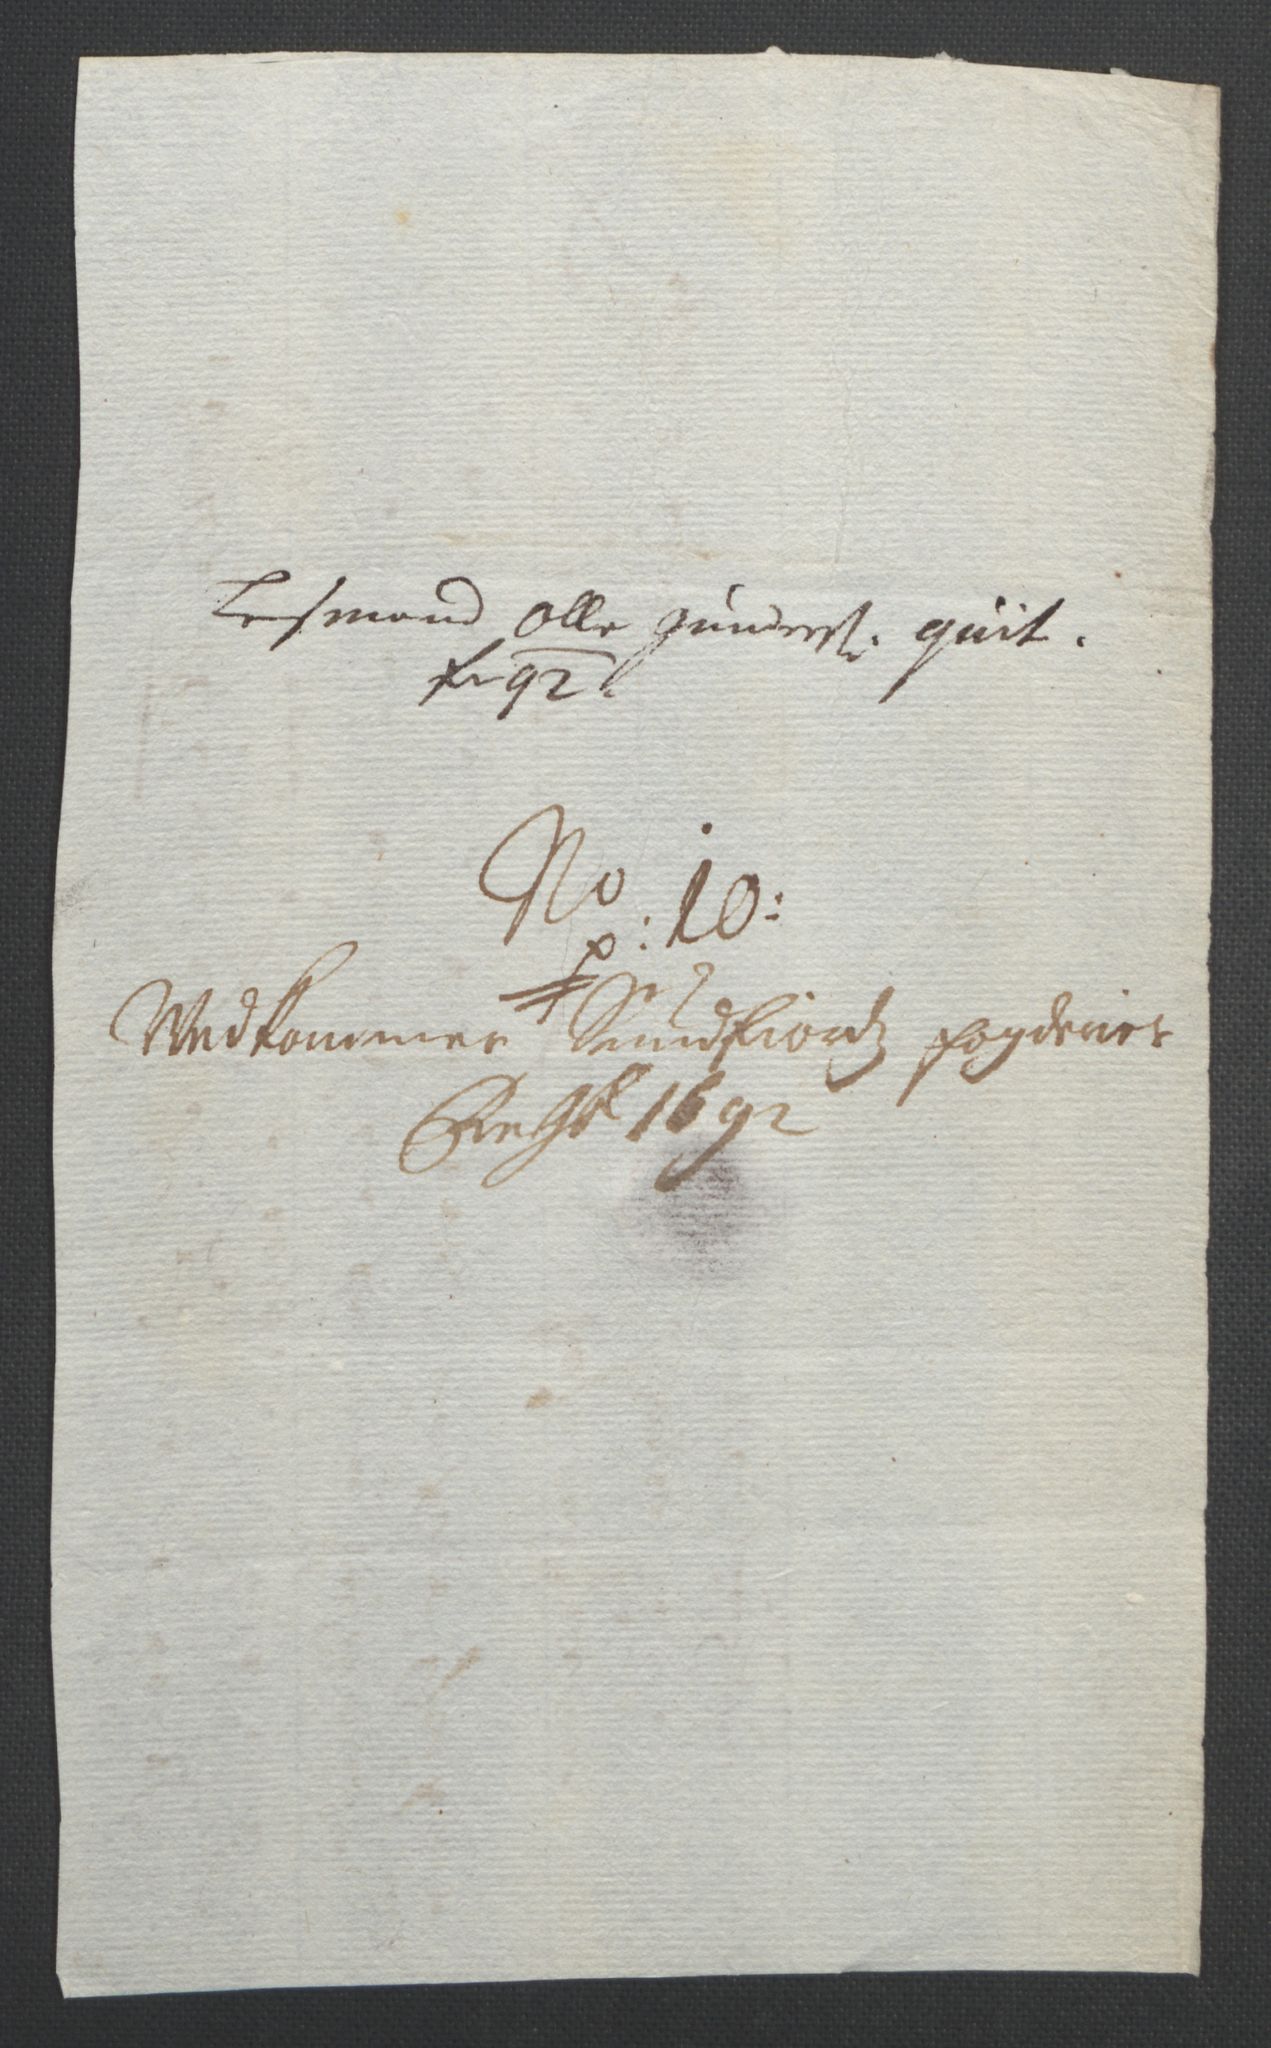 Lensmand Olle gunders: quit.
for 92.
No: 10:
p:
Vedkommer Sundfiords fogderies
Regsk 1692